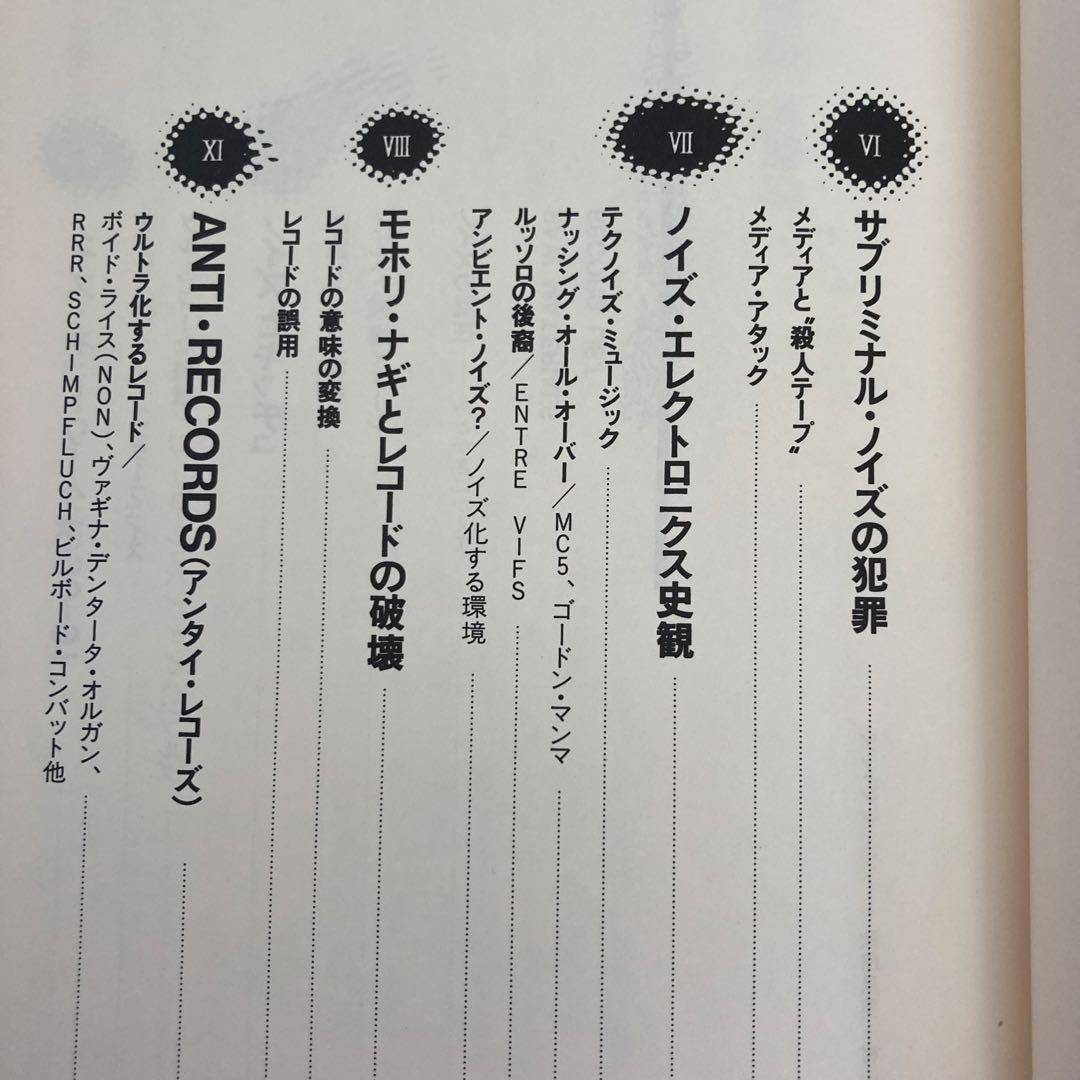 VI
サブリミナル・ノイズの犯罪
メディアと〝殺人テープ〟
メディア・アタック
VII
ノイズ・エレクトロニクス史観
テクノイズ・ミュージック
ナッシング・オール・オーバー／MC5、ゴードン・マンマ
ルッソロの後裔／ENTRE VIFS
アンビエント・ノイズ？／ノイズ化する環境
VIII
モホリ・ナギとレコードの破壊
レコードの意味の変換
レコードの誤用
XI
ANTI・RECORDS（アンタイ・レコーズ）
ウルトラ化するレコード／
ボイド・ライス（NON）、ヴァギナ・デンタータ・オルガン、
RRR、SCHIMPFLUCH、ビルボード・コンバット他